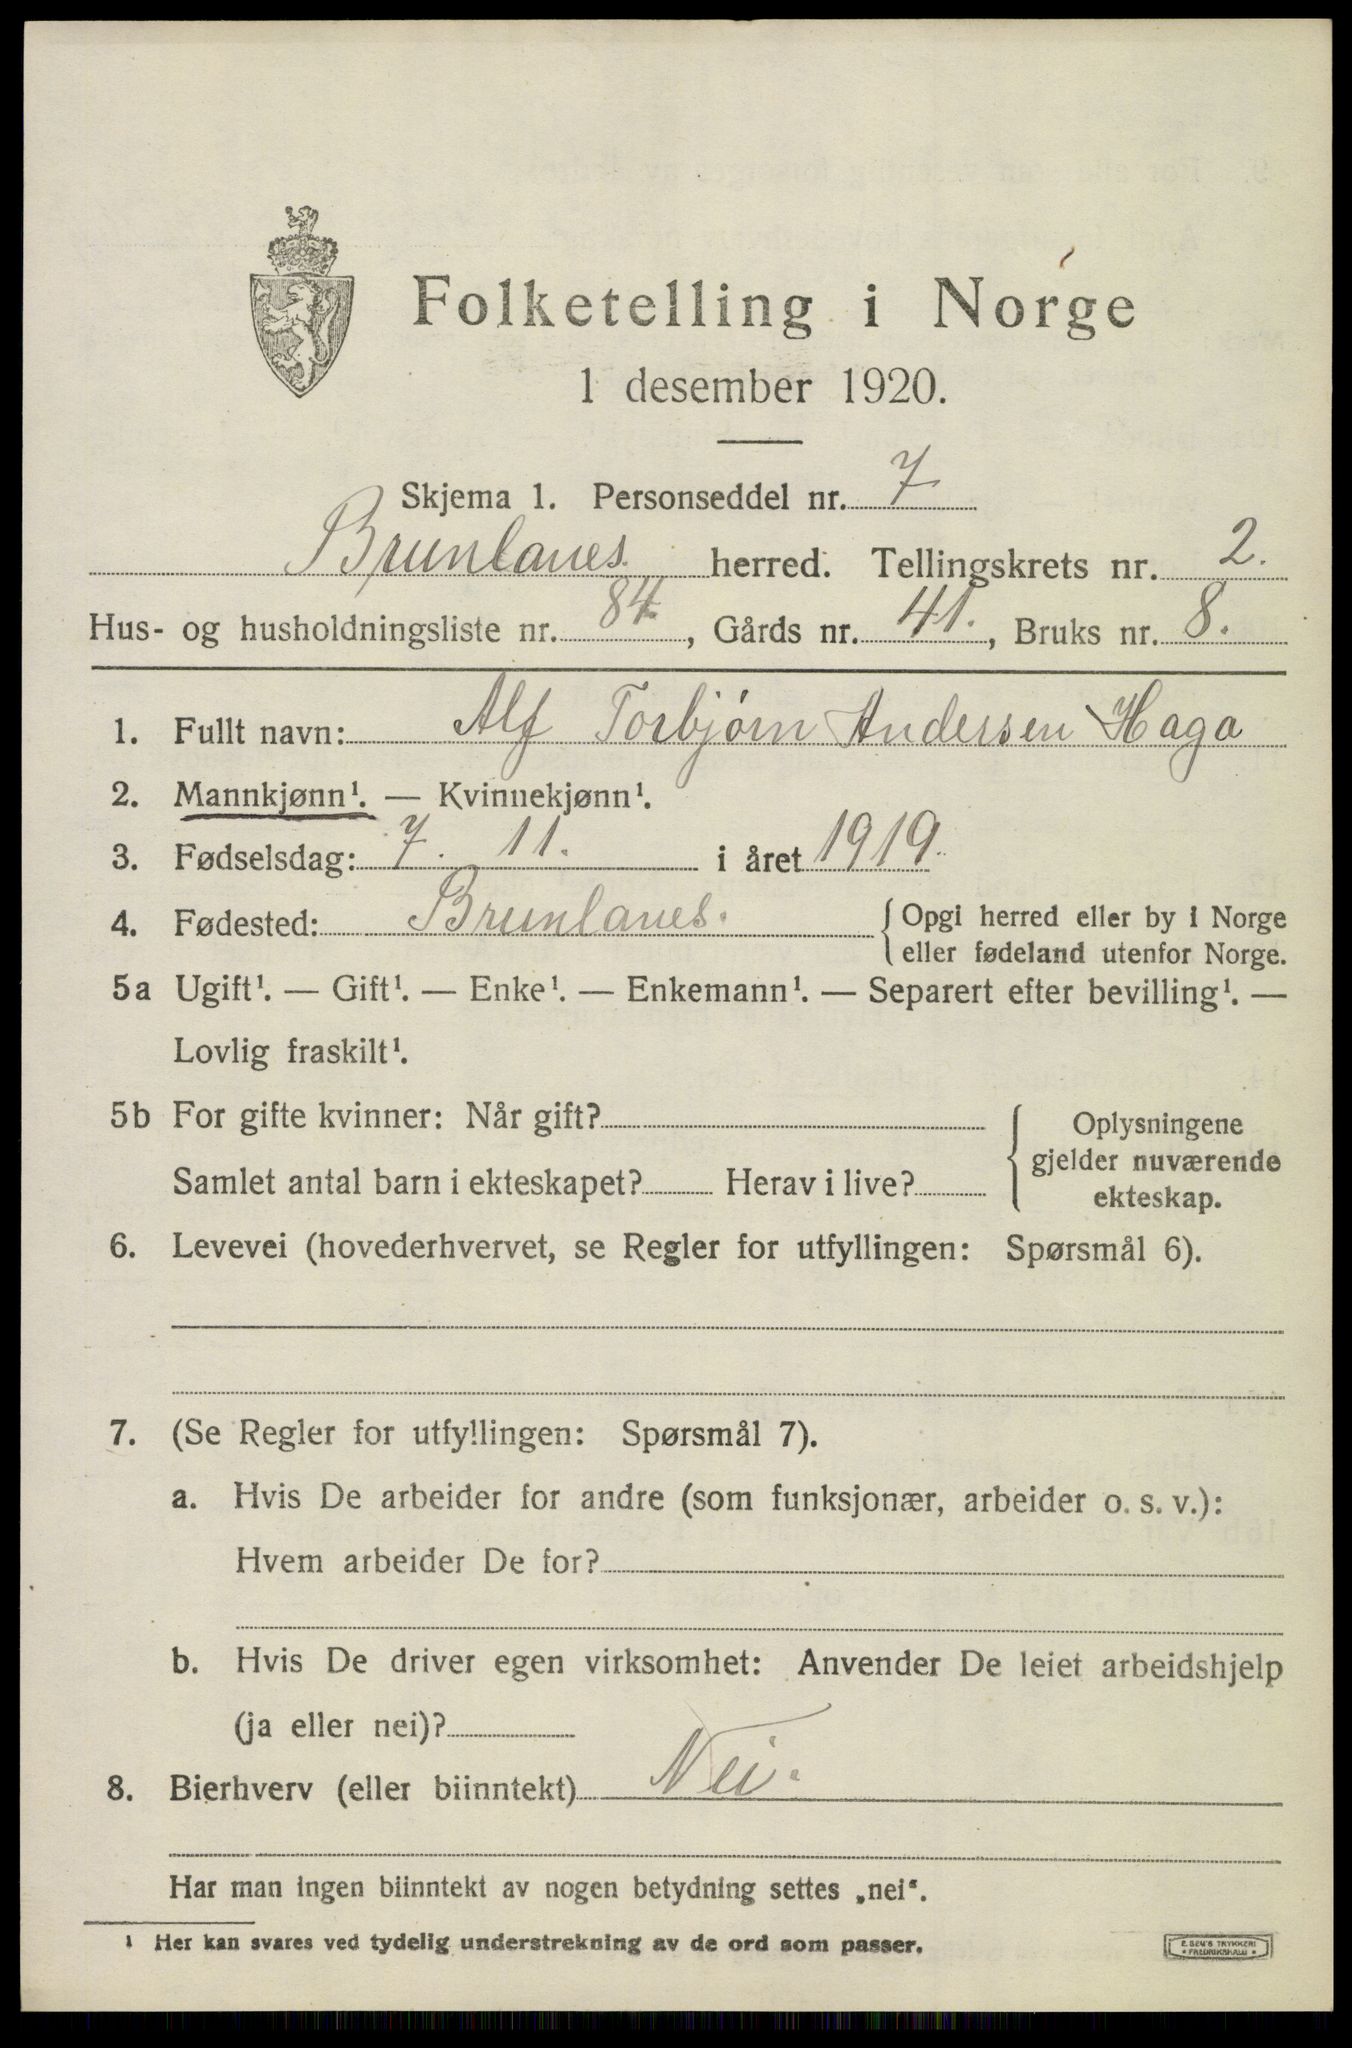 Folketelling i Norge
1 desember 1920.
Skjema 1. Personseddel nr. 7
Brunlanes herred. Tellingskrets nr. 2.
Hus- og husholdningsliste nr. 84, Gårds nr. 41., Bruks nr. 8.
1. Fullt navn: Alf Torbjørn Andersen Haga
2. Mannkjønn¹. — Kvinnekjønn¹.
3. Fødselsdag: 7. 11. i året 1919.
4. Fødested: Brunlanes. { Opgi herred eller by i Norge
eller fødeland utenfor Norge.
5a Ugift¹. — Gift¹. — Enke¹. — Enkemann¹. — Separert efter bevilling¹. —
Lovlig fraskilt¹.
5b For gifte kvinner: Når gift? { Oplysningene
gjelder nuværende
Samlet antal barn i ekteskapet? Herav i live?
ekteskap.
6. Levevei (hovederhvervet, se Regler for utfyllingen: Spørsmål 6).
7. (Se Regler for utfyllingen: Spørsmål 7).
a. Hvis De arbeider for andre (som funksjonær, arbeider o. s. v.):
Hvem arbeider De for?
b. Hvis De driver egen virksomhet: Anvender De leiet arbeidshjelp
(ja eller nei)?
8. Bierhverv (eller biinntekt) Nei.
Har man ingen biinntekt av nogen betydning settes „nei“.
¹ Her kan svares ved tydelig understrekning av de ord som passer.
E. SEM'S TRYKKERI
* FREDRIKSHALD *